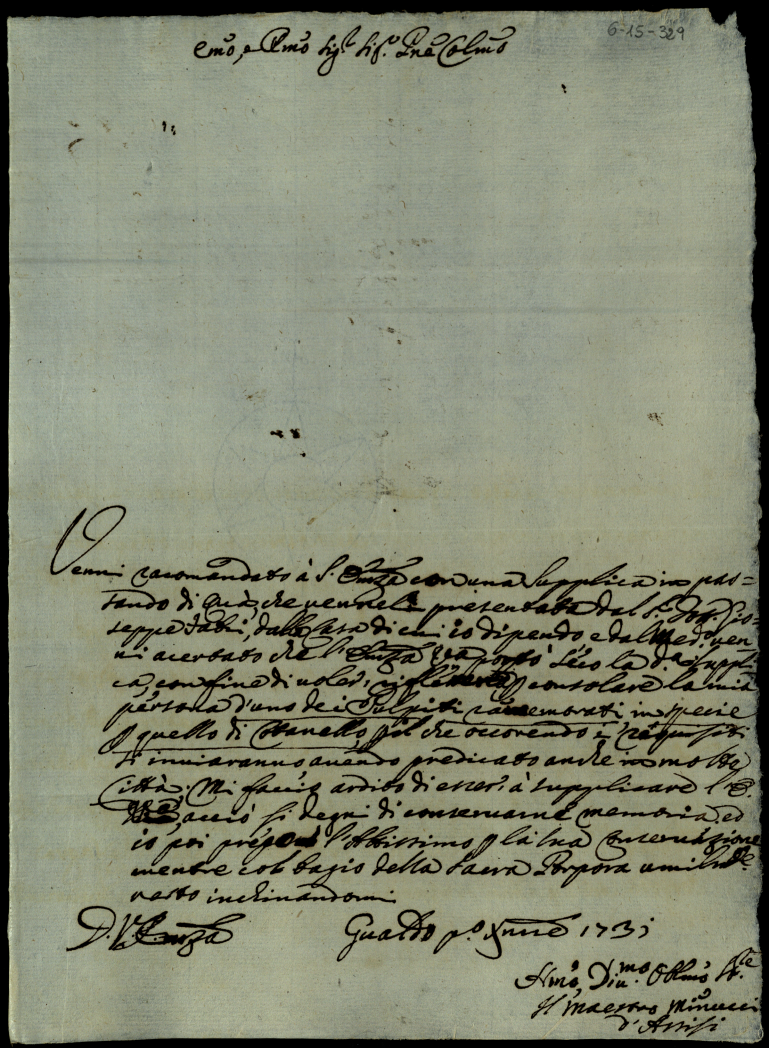 6-15-329
Emo, e Rmo Sig.r Sig.r Pne Colmo
Venni racomandato à S. Emza con una supplica in pas=
sando di quà, che venne li presentata dal S.r Dott. Gio=
seppe Fabri, dalla Casa di cui io dipendo e dal Med.mo ven
ni acertato che l' Emza portò seco la d.a suppli
ca, con fine di voler consolare la mia
persona d'uno dei Pulpiti ramemorati in specie
p quello di Otranello, p il che occorendo i requisiti
si inviaranno avendo predicato anche in molte
Città. Mi faccio ardito di esser à supplicare l' E.
acciò si degni di conservarne memoria, ed
io poi prego l'Altissimo p la sua conservazione
mentre col bagio della Sacra Porpora
resto inchinandomi
D. V. Emza
Gualdo p.o Xmre 1731
Hmo, Div.mo Oblmo
Il Maestro Minucci
d'Assisi